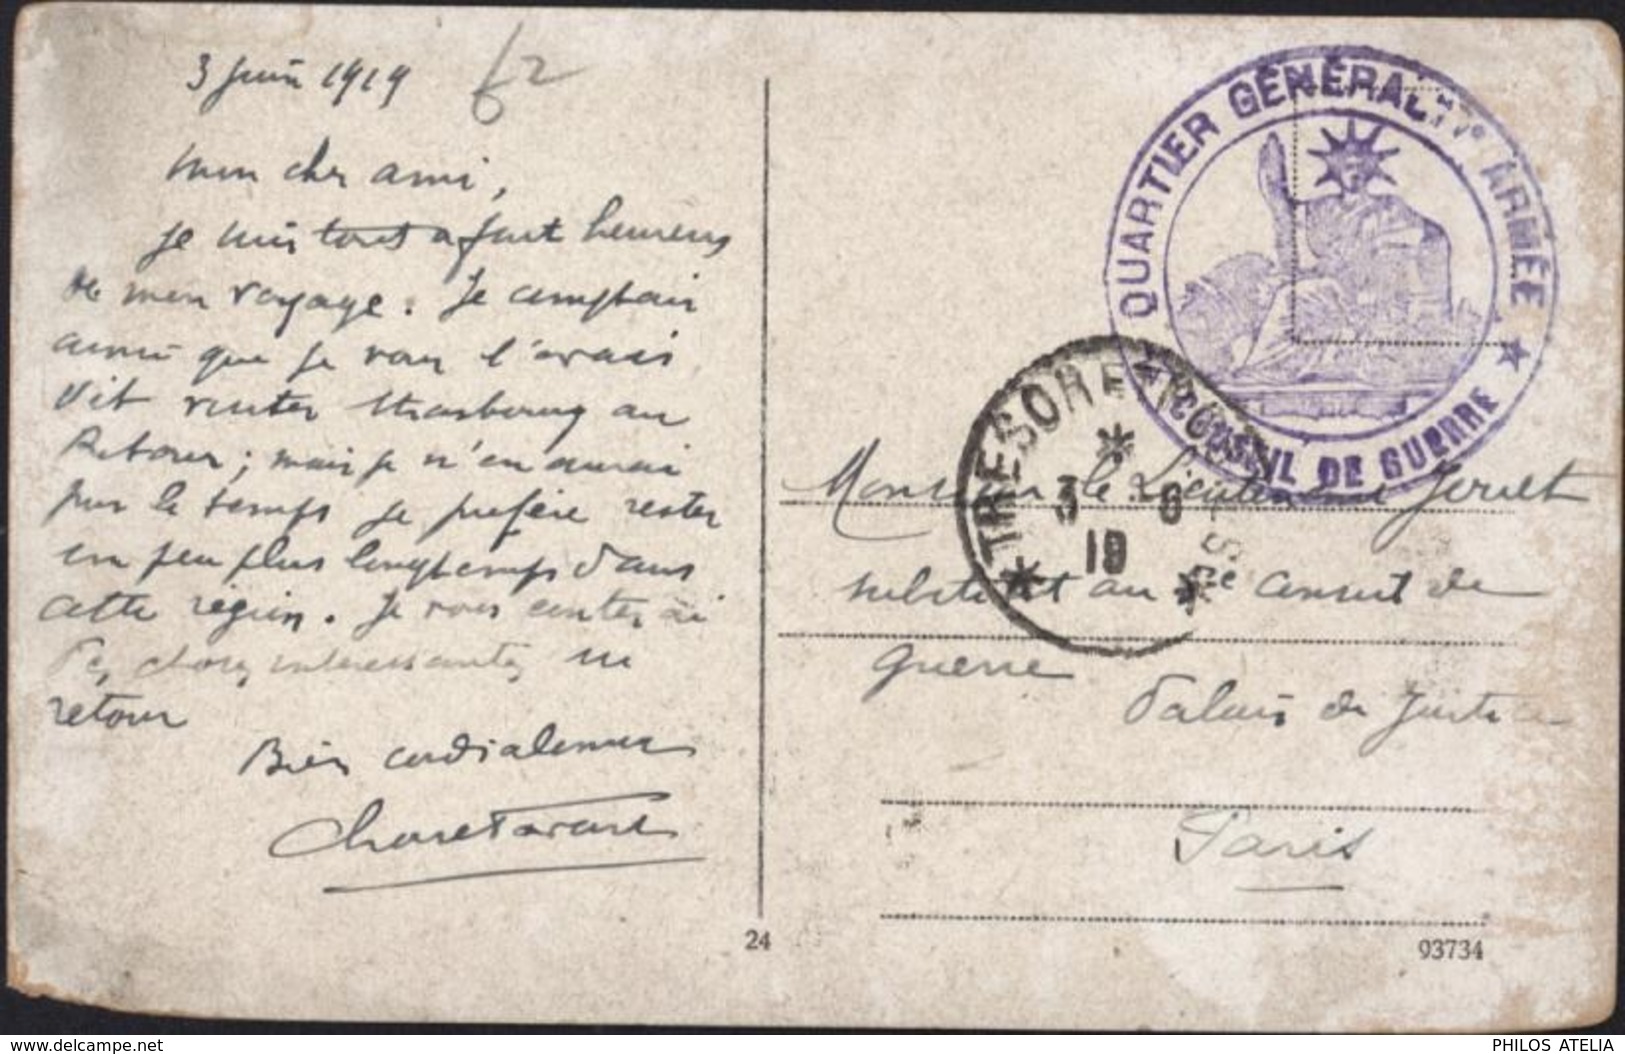 3 juin 1919
62
Mon cher ami,
Je suis tout à fait heureux
de mon voyage. Je comptais
ainsi que je vous l'avais
dit visiter Strasbourg au
Retour ; mais je n'en aurai
pas le temps je préfère rester
un peu plus longtemps dans
cette région. Je vous conterai
des choses intéressantes au
retour
Bien cordialement
QUARTIER GÉNÉRAL ARMÉE
CONSEIL DE GUERRE
TRESOR ET POSTES
3 6
19
Monsieur le Lieutenant
substitut au 2e Conseil de
guerre
Palais de Justice
Paris
24
93734
www.delcampe.net
PHILOS ATELIA